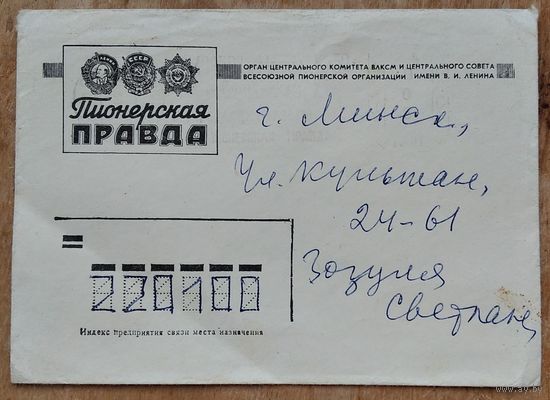 ОРГАН ЦЕНТРАЛЬНОГО КОМИТЕТА ВЛКСМ И ЦЕНТРАЛЬНОГО СОВЕТА
ВСЕСОЮЗНОЙ ПИОНЕРСКОЙ ОРГАНИЗАЦИИ ИМЕНИ В. И. ЛЕНИНА
СССР
Пионерская
ПРАВДА
г. Минск,
ул. Кульман,
24-61
Зозуля
Светлане
220100
Индекс предприятия связи места назначения
www.ay.by